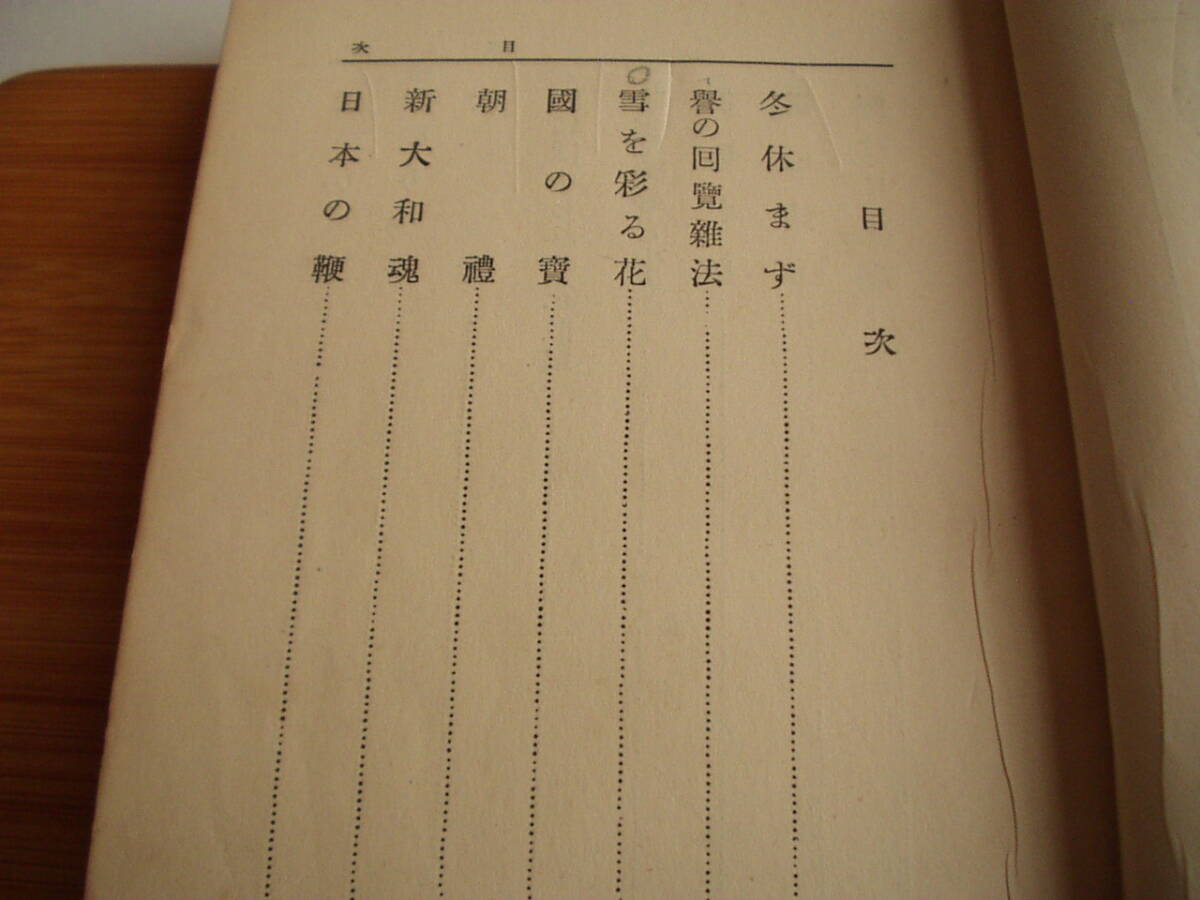 目次
目次
冬休まず
譽の回覽雜法
雪を彩る花
國の寶
朝禮
新大和魂
日本の鞭